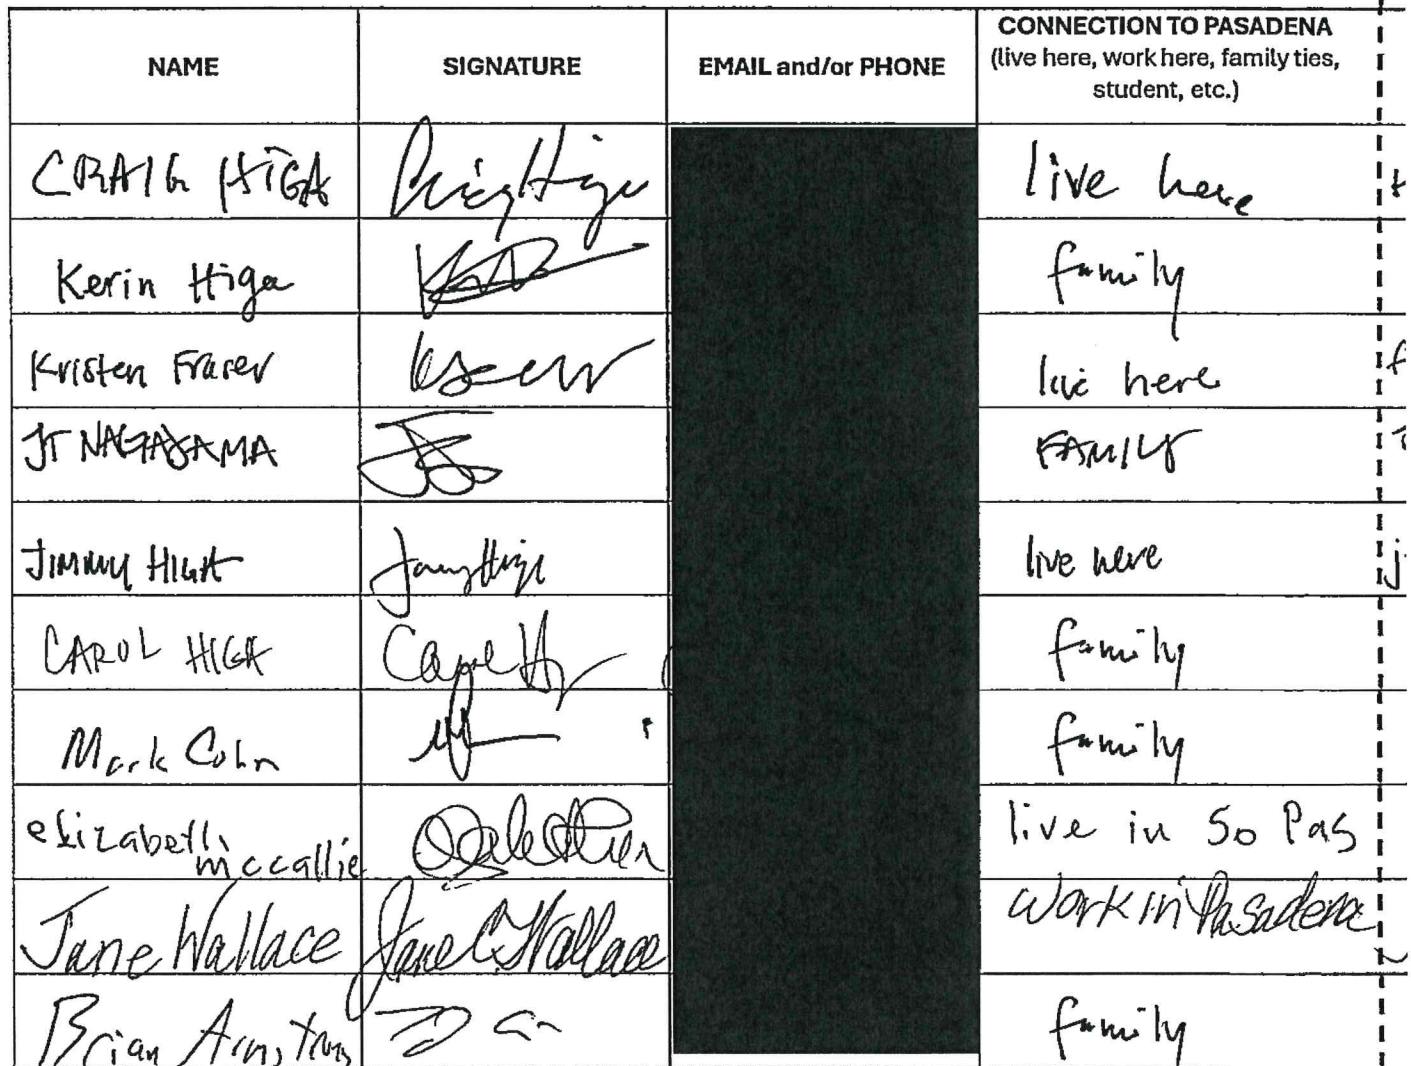 NAME SIGNATURE EMAIL and/or PHONE CONNECTION TO PASADENA
(live here, work here, family ties,
student, etc.)
CRAIG HIGA Craig Higa live here
Kerin Higa family
Kristen Fraser live here
JT NAGAYAMA FAMILY
JIMMY HIGA Jimmy Higa live here
CAROL HIGA Carol H family
Mark Cohn family
elizabeth live in So Pas
mccallie
Jane Wallace Jane C. Wallace work in Pasadena
Brian Armstrong family